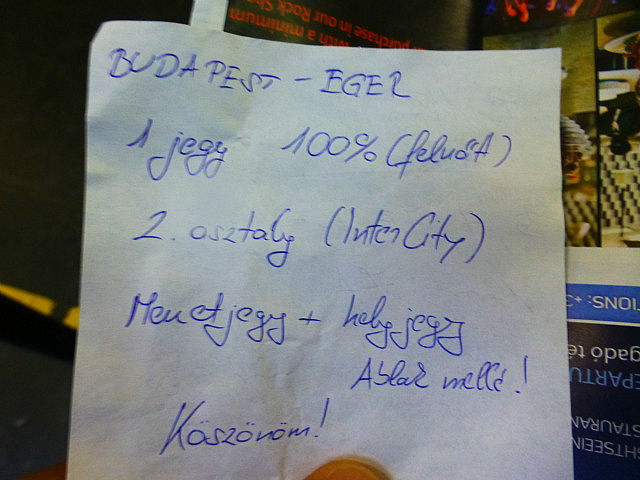 BUDAPEST - EGER
1 jegy 100% (felnőtt)
2. osztaly (InterCity)
Menetjegy + helyjegy
Ablak mellé!
Köszönöm!
purchase in our Rock Sh
with a minimum
TIONS: +3
gadó té
EPARTU
STAURAN
HTSEEIN